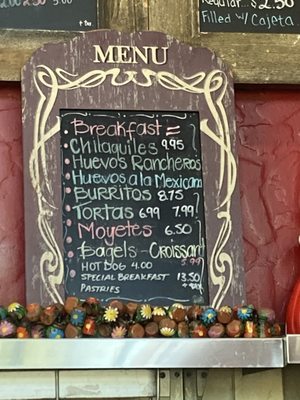 .00 5.00
Regular... $2.50
Filled w/ Cajeta
MENU
Breakfast =
Chilaquiles 9.95
Huevos Rancheros
Huevos a la Mexicana
Burritos 8.75
Tortas 6.99 7.99
Moyetes 6.50
Bagels - Croissant
5.99
HOT DOG 4.00
SPECIAL BREAKFAST 13.50
PASTRIES